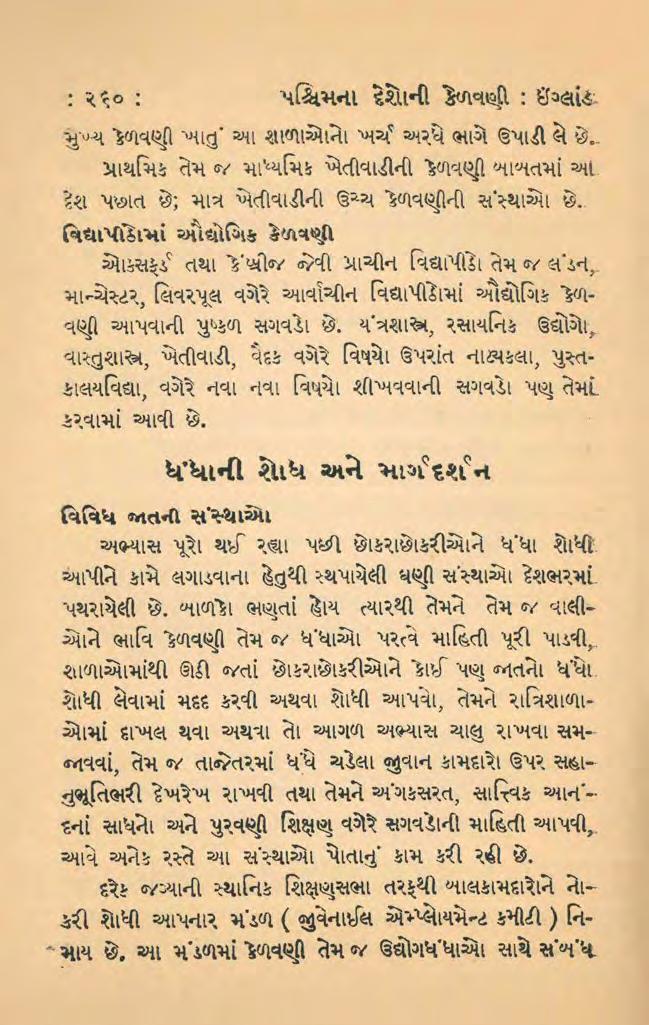 : ૨૬૦ : પશ્ચિમના દેશોની કેળવણી : ઇંગ્લાંડ
મુખ્ય કેળવણી ખાતું આ શાળાઓનો ખર્ચ અરધે ભાગે ઉપાડી લે છે.
પ્રાથમિક તેમ જ માધ્યમિક ખેતીવાડીની કેળવણી બાબતમાં આ
દેશ પછાત છે; માત્ર ખેતીવાડીની ઉચ્ચ કેળવણીની સંસ્થાઓ છે.
વિદ્યાપીઠોમાં ઔદ્યોગિક કેળવણી
ઓક્સફર્ડ તથા કેંબ્રીજ જેવી પ્રાચીન વિદ્યાપીઠો તેમ જ લંડન,
માન્ચેસ્ટર, લિવરપૂલ વગેરે આર્વાચીન વિદ્યાપીઠોમાં ઔદ્યોગિક કેળ-
વણી આપવાની પુષ્કળ સગવડો છે. યંત્રશાસ્ત્ર, રસાયનિક ઉદ્યોગો,
વાસ્તુશાસ્ત્ર, ખેતીવાડી, વૈદક વગેરે વિષયો ઉપરાંત નાટ્યકલા, પુસ્ત-
કાલયવિદ્યા, વગેરે નવા નવા વિષયો શીખવવાની સગવડો પણ તેમાં
કરવામાં આવી છે.
ધંધાની શોધ અને માર્ગદર્શન
વિવિધ જાતની સંસ્થાઓ
અભ્યાસ પૂરો થઈ રહ્યા પછી છોકરાછોકરીઓને ધંધા શોધી
આપીને કામે લગાડવાના હેતુથી સ્થપાયેલી ઘણી સંસ્થાઓ દેશભરમાં
પથરાયેલી છે. બાળકો ભણતાં હોય ત્યારથી તેમને તેમ જ વાલી-
ઓને ભાવિ કેળવણી તેમ જ ધંધાઓ પરત્વે માહિતી પૂરી પાડવી,
શાળાઓમાંથી ઊઠી જતાં છોકરાછોકરીઓને કોઈ પણ જાતનો ધંધો
શોધી લેવામાં મદદ કરવી અથવા શોધી આપવો, તેમને રાત્રિશાળા-
ઓમાં દાખલ થવા અથવા તો આગળ અભ્યાસ ચાલુ રાખવા સમ-
જાવવાં, તેમ જ તાજેતરમાં ધંધે ચડેલા જુવાન કામદારો ઉપર સહા-
નુભૂતિભરી દેખરેખ રાખવી તથા તેમને અંગકસરત, સાત્ત્વિક આનં-
દનાં સાધનો અને પુરવણી શિક્ષણ વગેરે સગવડોની માહિતી આપવી,
આવે અનેક રસ્તે આ સંસ્થાઓ પોતાનું કામ કરી રહી છે.
દરેક જગ્યાની સ્થાનિક શિક્ષણસભા તરફથી બાલકામદારોને નો-
કરી શોધી આપનાર મંડળ ( જુવેનાઈલ એમ્પ્લોયમેન્ટ કમીટી ) નિ-
માય છે. આ મંડળમાં કેળવણી તેમ જ ઉદ્યોગધંધાઓ સાથે સંબંધ